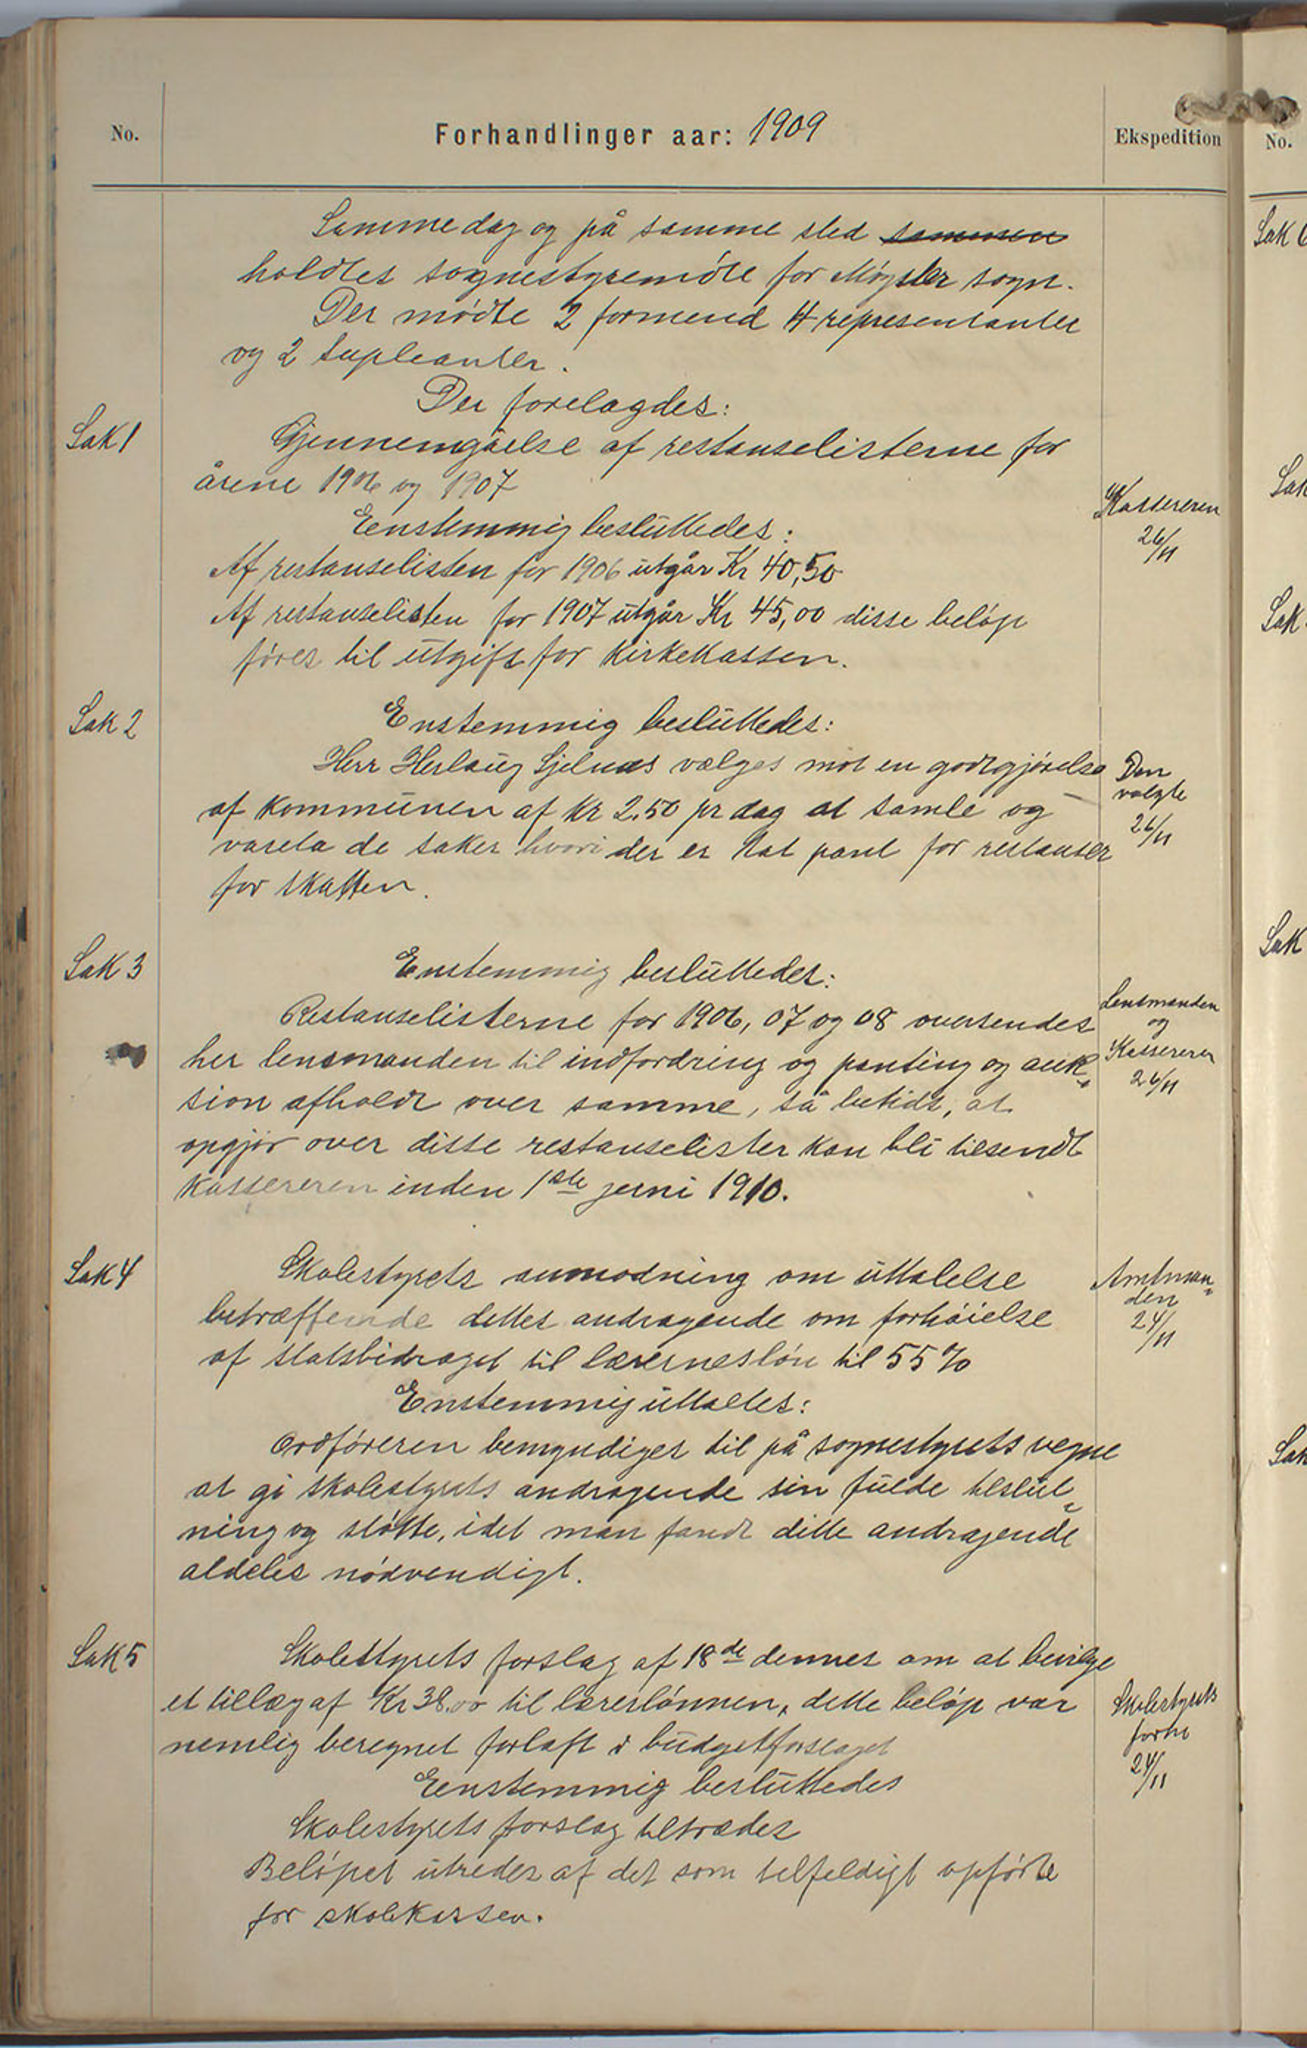 No.
Forhandlinger aar: 1909
Ekspedition
No.
Samme dag og på samme sted sammen
holdtes sognestyremöte for Møgster sogn.
Der mødte 2 formend 4 representanter
og 2 supleanter.
Der forelagdes:
Sak 1
Gjennemgåelse af restanselisterne for
årene 1906 og 1907
Eenstemmig besluttedes:
Kassereren
26/11
Af restanselisten for 1906 utgår Kr 40,50
Af restanselisten for 1907 utgår Kr 45,00 disse beløp
føres til utgift for Kirkekassen.
Sak 2
Enstemmig besluttedes:
Herr Herlaug Sjelnæs vælges mot en godtgjörelse
af kommunen af kr 2,50 pr dag at samle og
vareta de saker hvori der er tat pant for restanser
for skatten.
Den
valgte
26/11
Sak 3
Enstemmig besluttedes:
Restanselisterne for 1906, 07 og 08 oversendes
her lensmanden til indfordring og panting og auk-
sion afholdt over samme, så betids, at
opgjør over disse restanselister kan bli tilsendt
kassereren inden 1ste juni 1910.
Lensmanden
og
Kassereren
26/11
Sak 4
Skolestyrets anmodning om uttalelse
betræffende dettes andragende om forhöielse
af statsbidraget til lærernes lön til 55 %
Enstemmig uttaltes:
Ordföreren bemyndiges til på sognestyrets vegne
at gi skolestyrets andragende sin fulde tilslut-
ning og støtte, idet man fandt dette andragende
aldeles nödvendigt.
Amtman-
den
24/11
Sak 5
Skolestyrets forslag af 18de dennes om at bevilge
et tillæg af Kr 38,00 til lærerlönnen, dette beløp var
nemlig beregnet forlaft i budgetforslaget
Eenstemmig besluttedes
Skolestyrets forslag tiltrædes
Beløpet utredes af det som tilfeldigt opførte
for skolekassen.
Skolestyrets
form
24/11
Sak 6
Sak
Sak
Sak
Sak